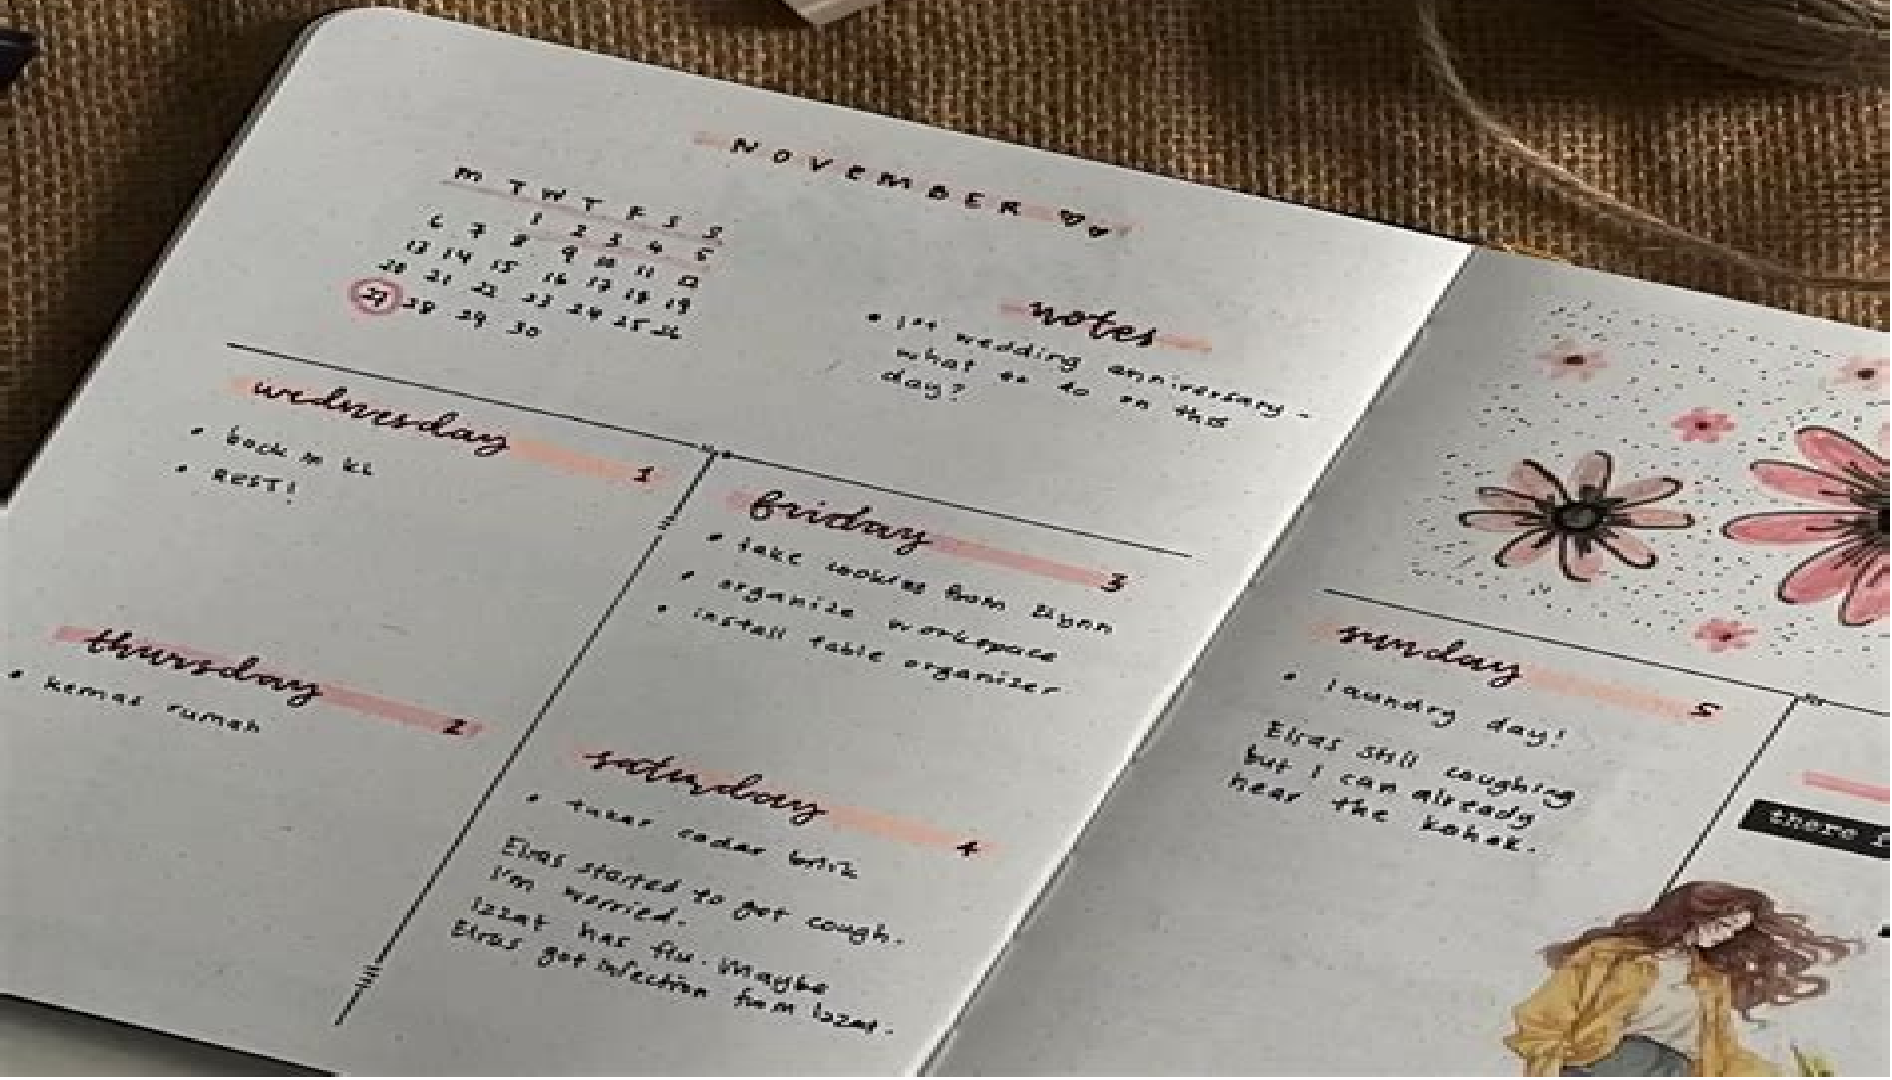 NOVEMBER
M T W T F S S
1 2 3 4 5
6 7 8 9 10 11 12
13 14 15 16 17 18 19
20 21 22 23 24 25 26
27 28 29 30
notes
• 1st wedding anniversary -
what to do on this
day?
wednesday 1
• back in KL
• REST!
thursday 2
• kemas rumah
friday 3
• take cookies from
• organize workspace
• install table organizer
saturday 4
• tukar cadar
Elras started to get cough.
I'm worried.
Izzat has flu. Maybe
Elras got infection from Izzat.
sunday 5
• laundry day!
Elras still coughing
but I can already
hear the kahak.
there